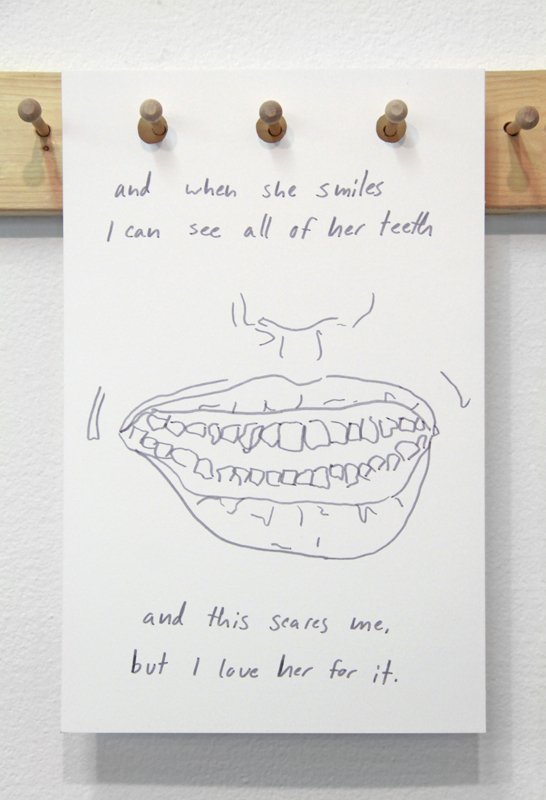 and when she smiles
I can see all of her teeth
and this scares me,
but I love her for it.